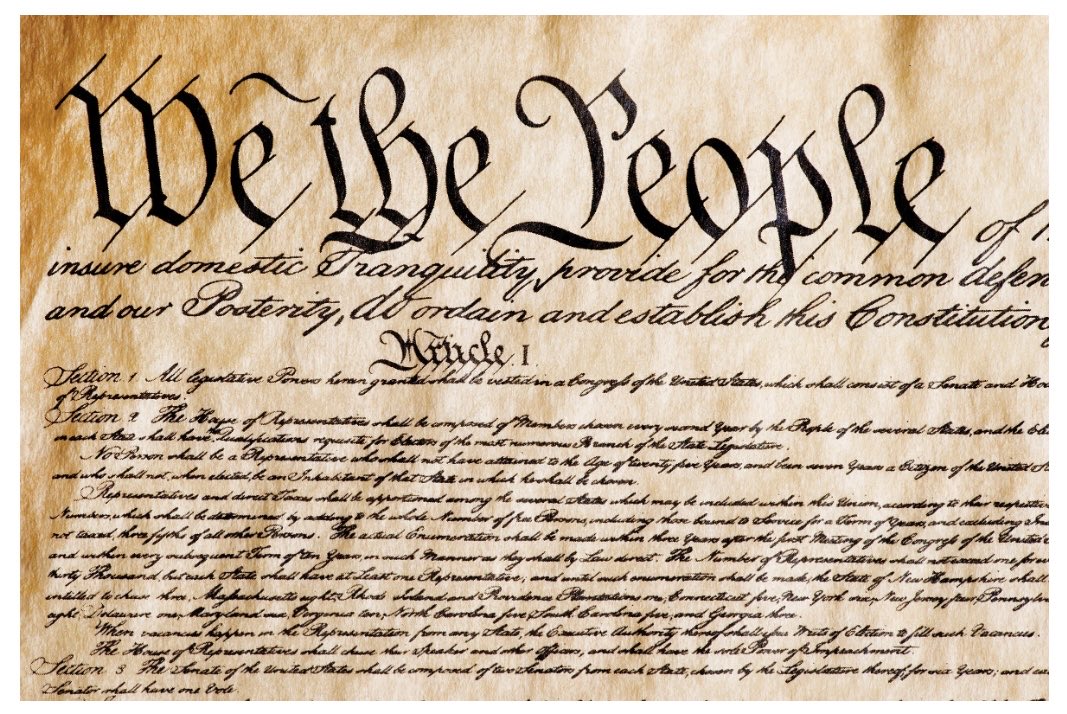 We the People of
insure domestic Tranquility, provide for the common defen
and our Posterity, do ordain and establish this Constitution
Article. I
Section 1. All legislative Powers herein granted shall be vested in a Congress of the United States, which shall consist of a Senate and Hou
of Representatives.
Section 2. The House of Representatives shall be composed of Members chosen every second Year by the People of the several States, and the Elec
in each State shall have the Qualifications requisite for Electors of the most numerous Branch of the State Legislature.
No Person shall be a Representative who shall not have attained to the Age of twenty five Years, and been seven Years a Citizen of the United St
and who shall not, when elected, be an Inhabitant of that State in which he shall be chosen.
Representatives and direct Taxes shall be apportioned among the several States which may be included within this Union, according to their respective
Numbers, which shall be determined by adding to the whole Number of free Persons, including those bound to Service for a Term of Years, and excluding Ind
not taxed, three fifths of all other Persons. The actual Enumeration shall be made within three Years after the first Meeting of the Congress of the United
and within every subsequent Term of ten Years, in such Manner as they shall by Law direct. The Number of Representatives shall not exceed one for ev
thirty Thousand, but each State shall have at Least one Representative; and until such enumeration shall be made, the State of New Hampshire shall
entitled to chuse three, Massachusetts eight, Rhode Island and Providence Plantations one, Connecticut five, New York six, New Jersey four, Pennsylva
eight, Delaware one, Maryland six, Virginia ten, North Carolina five, South Carolina five, and Georgia three.
When vacancies happen in the Representation from any State, the Executive Authority thereof shall issue Writs of Election to fill such Vacancies.
The House of Representatives shall chuse their Speaker and other Officers; and shall have the sole Power of Impeachment.
Section 3. The Senate of the United States shall be composed of two Senators from each State, chosen by the Legislature thereof, for six Years; and eac
Senator shall have one Vote.